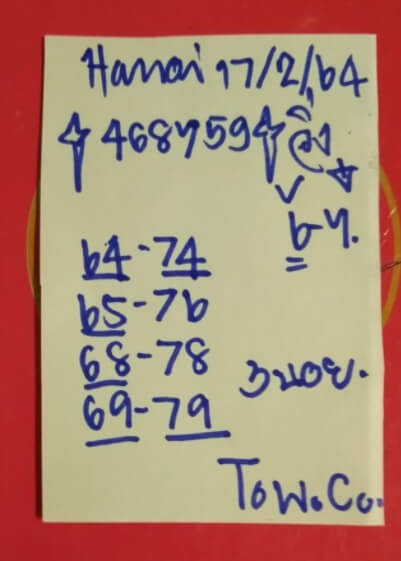 Hanoi 17/2/64
468759 วิ่ง
6-7.
64-74
65-76
68-78
69-79
ฮานอย.
Tow.Co.